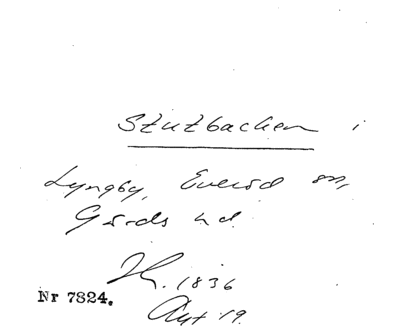 Stutbacken i
Lyngby, Everöd sn,
Gärds hd.
1836
Nr 7824.
Akt 19.